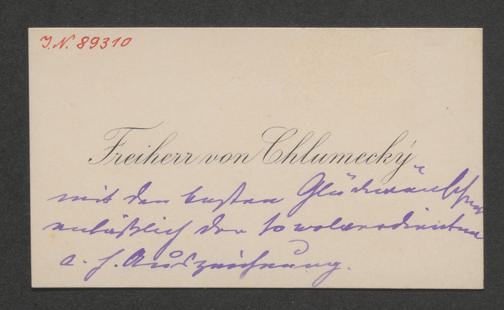 J.N. 89310
Freiherr von Chlumecký
mit den besten Glückwünschen
anläßlich der so wolverdienten
a. h. Auszeichnung.